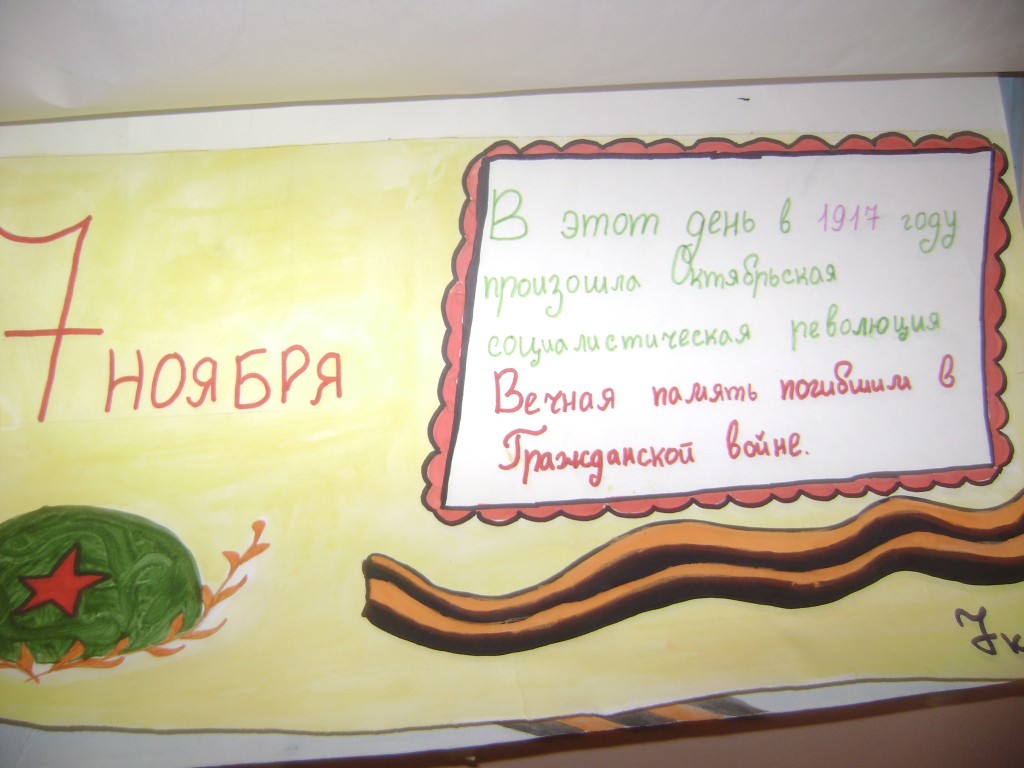 7 НОЯБРЯ
В этот день в 1917 году
произошла Октябрьская
социалистическая революция
Вечная память погибшим в
Гражданской войне.
7к